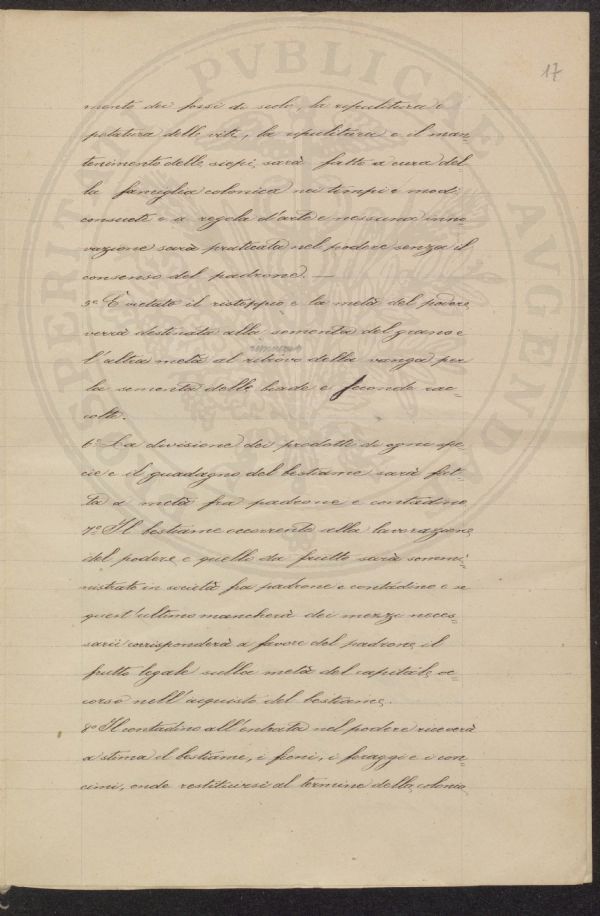 PVBLICAE
SPERITATI
AVGENDAE
17
mento dei fossi di scolo, la ripulitura e
potatura delle vite, la ripulitura e il man=
tenimento delle siepi, sarà fatto a cura del=
la famiglia colonica nei tempi e modi
consueti e a regola d'arte e nessuna inno=
vazione sarà praticata nel podere senza il
consenso del padrone. —
5º È vietato il ristoppio e la metà del podere
verrà destinata alla sementa del grano e
rinnovo
l'altra metà al ritrovo della vanga per
la sementa delle biade e seconde rac=
colte.
6º La divisione dei prodotti di ogni spe=
cie e il guadagno del bestiame sarà fat=
ta a metà fra padrone e contadino
7º Il bestiame occorrente alla lavorazione
del podere, e quello da frutto sarà sommi=
nistrato in società fra padrone e contadino e se
quest'ultimo mancherà dei mezzi neces=
sarii corrisponderà a favore del padrone, il
frutto legale sulla metà del capitale oc=
corso nell'acquisto del bestiame.
8º Il contadino all'entrata nel podere riceverà
a stima il bestiame, i fieni, i foraggi e i con=
cimi, onde restituirsi al termine della colonia,